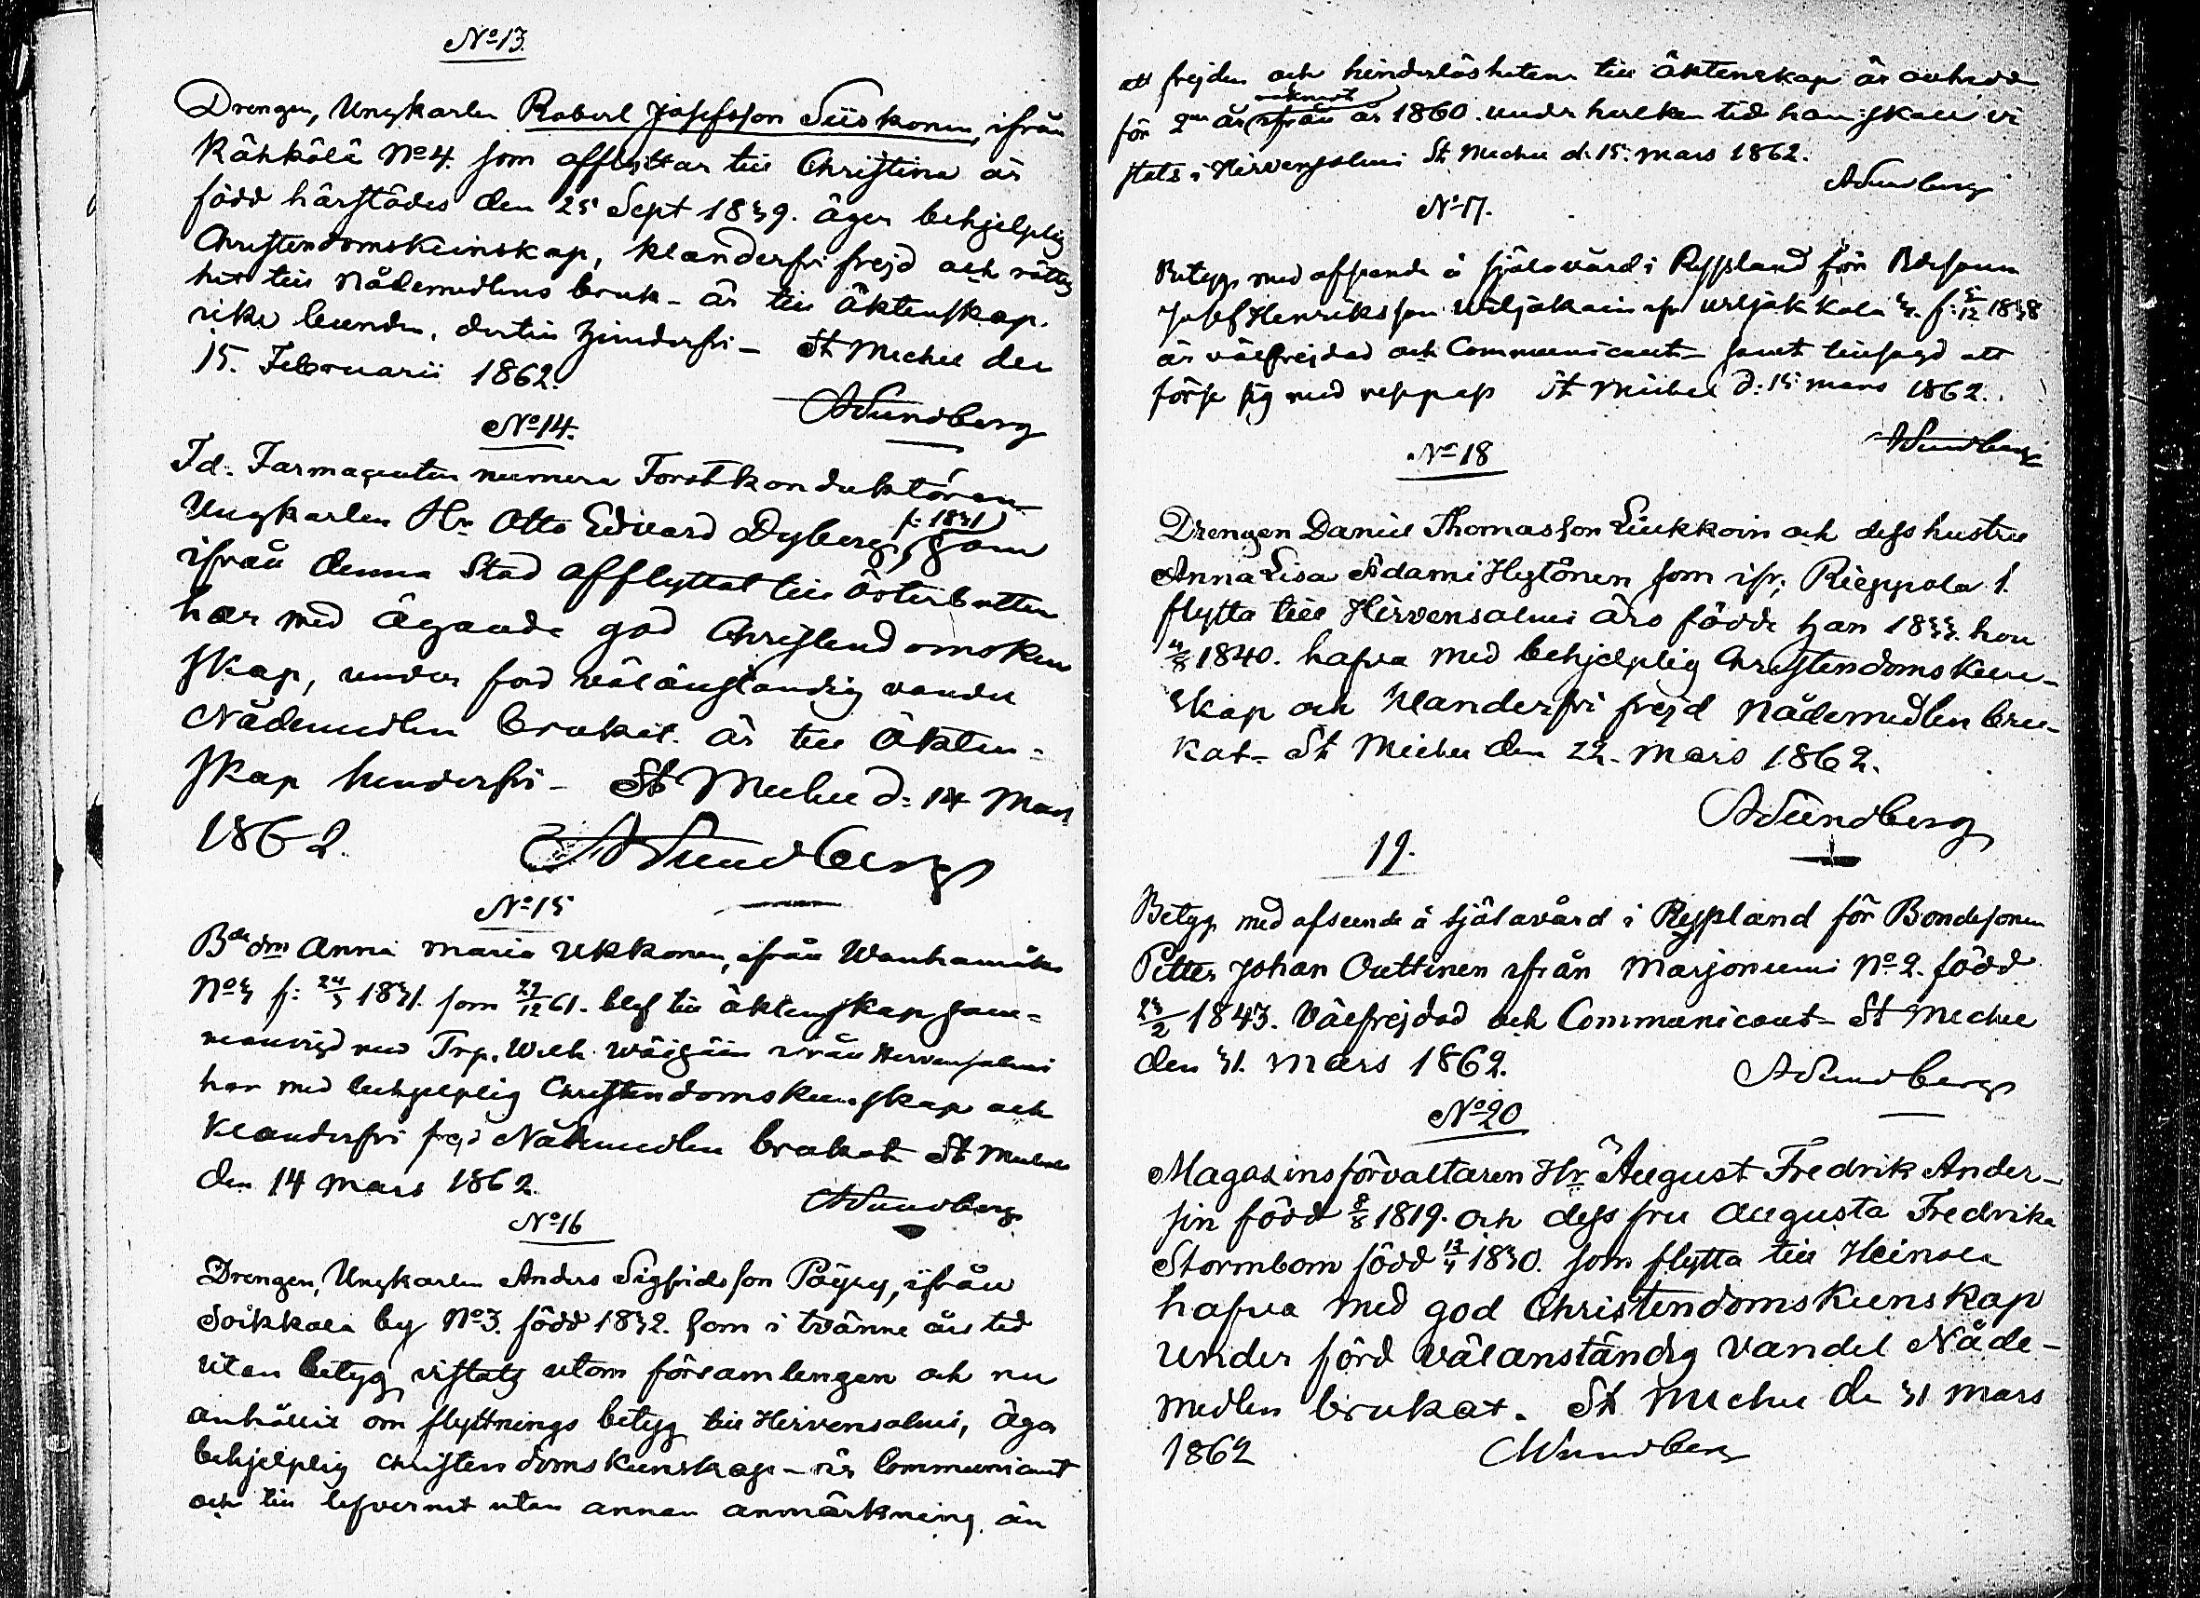 No 13.
Drengen, Ungkarlen Robert Josefsson Siiskonen, ifrån
Kähkölä No 4. som afflyttar till Christina är
född härstädes den 25 Sept 1839. äger behjelplig
Christendomskunskap, klanderfri frejd och rättig
het till Nådemedlens bruk - är till äktenskap.
hinderfri - St Michel den
15. Februarii 1862.
ASundberg
No 14.
Fd. Farmaceuten numera Forstkonduktören
Ungkarlen Hr Otto Edvard Dyberg, f. 1831 som
ifrån denna Stad afflyttat till Österbotten
har med ägande god Christendomskun
skap, under förd välanständig vandel
Nådemedlen brukat. är till äkten=
skap hinderfri - St Michel d: 14 Mars
1862.
ASundberg
No 15
Bdedm Anna Maria Ukkonen, ifrån Wanhamäki
No 3 f: 24/3 1831. som 27/12 61. blef till äktenskap sam=
manvigd med Trp. Wilh. Wäisäin ifrån Hirvensalmi
har med behjelplig Christendomskunskap och
Klanderfri frejd Nådemedlen brukat St Michel
den 14 Mars 1862.
ASundberg
No 16
Drengen, Ungkarlen Anders Sigfridsson Pöyry, ifrån
Soikkala by No 3. född 1832. som i tvänne års tid
utan betyg vistats utom församlingen och nu
anhållit om flyttnings betyg till Hirvensalmi, äger
behjelplig christendomskunskap - är Communicant
och till lefvernet utan annan anmärkning än
att frejden och hinderlösheten till äktenskap är
för 2ne år räknat ifrån år 1860. under hvilken tid han skall vi
stats i Hirvensalmi St Michel d. 15. Mars 1862.
ASundberg
No 17.
Betyg med afseende å själavård i Ryssland för Bdesonen
Josef Henriksson Wiljakain ifr Wiljakkala 3. f: 5/12 1838
är välfrejdad och Communicant - samt tillsagd att
förse sig med respass St Michel d: 15 Mars 1862.
ASundberg
No 18
Drengen Daniel Thomasson Liukkoin och dess hustru
Anna Lisa Adami Hytönen som ifr; Rieppola 1.
flytta till Hirvensalmi äro födde han 1833. hon
4/8 1840. hafva med behjelplig Christendomskun-
skap och klanderfri frejd Nådemedlen bru-
kat - St Michel den 22. Mars 1862.
ASundberg
19.
Betyg med afseende å själavård i Ryssland för Bondesonen
Petter Johan Outtinen ifrån Marjoniemi No 2. född
23/2 1843. Välfrejdad och Communicant - St Michel
den 31. Mars 1862.
ASundberg
No 20
Magazinsförvaltaren Hr August Fredrik Ander-
sin född 8/8 1819. och dess fru Augusta Fredrika
Stormbom född 13/4 1830. som flytta till Heinola
hafva med god Christendomskunskap
under förd välanständig vandel Nåde-
medlen brukat. St Michel de 31 Mars
1862
ASundberg